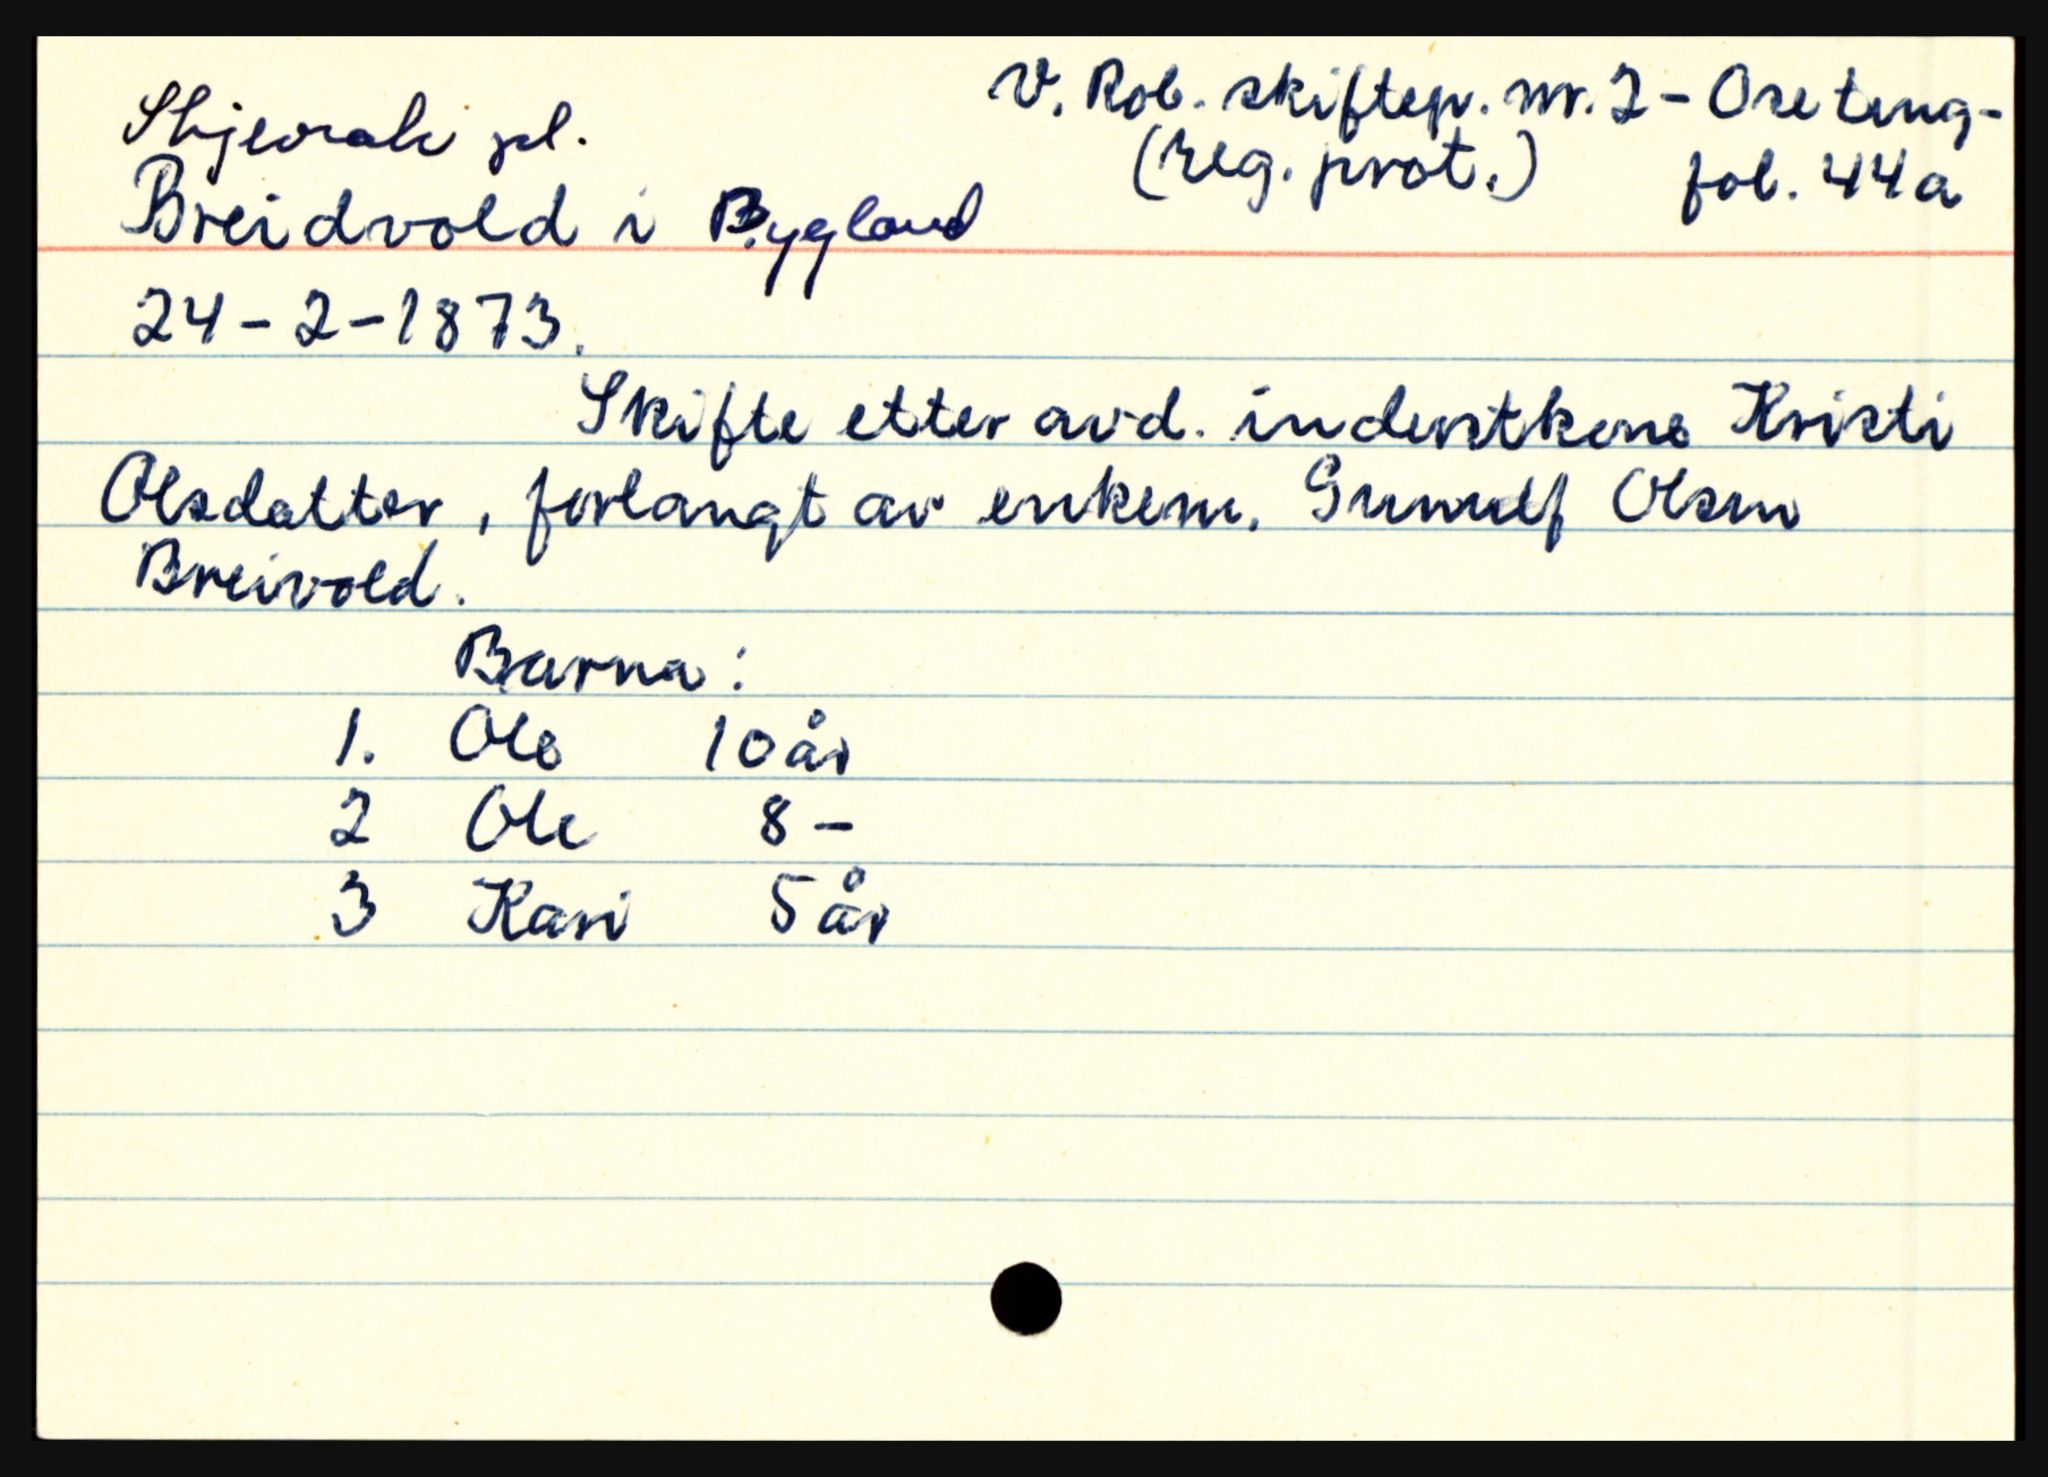 Skjevrak pl.
V. Rob. skiftep. nr. 2 - Ose ting-
(reg. prot.) fol. 44a
Breidvold i Bygland
24-2-1873.
Skifte etter avd. inderstkone Kristi
Olsdatter, forlangt av enkem. Gunulf Olsen
Breivold.
Barna:
1. Ole 10 år
2 Ole 8 -
3 Kari 5 år